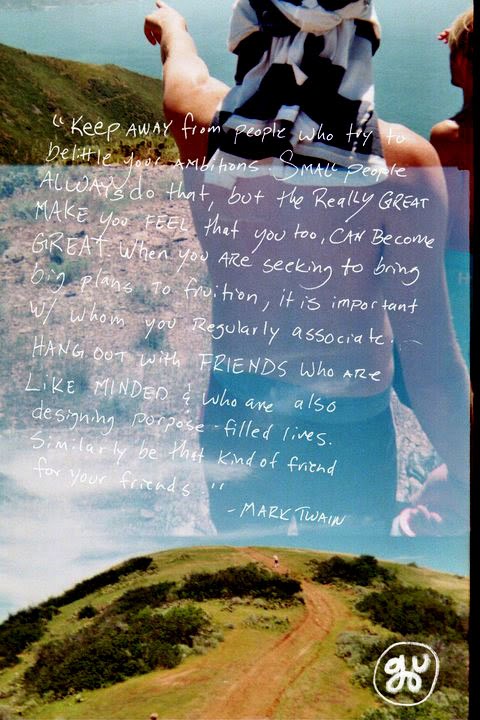 "Keep AWAY from people who try to
belittle your AMbitions. SMALL people
ALWAYS do that, but the Really GREAT
MAKE you FEEL that you too, CAN Become
GREAT. When you ARE seeking to bring
big plans to fruition, it is important
w/ whom you Regularly associate.
HANG OUT with FRIENDS who ARE
LIKE MINDED & who are also
designing porpose-filled lives.
Similarly be that kind of friend
for your friends."
- MARK TWAIN